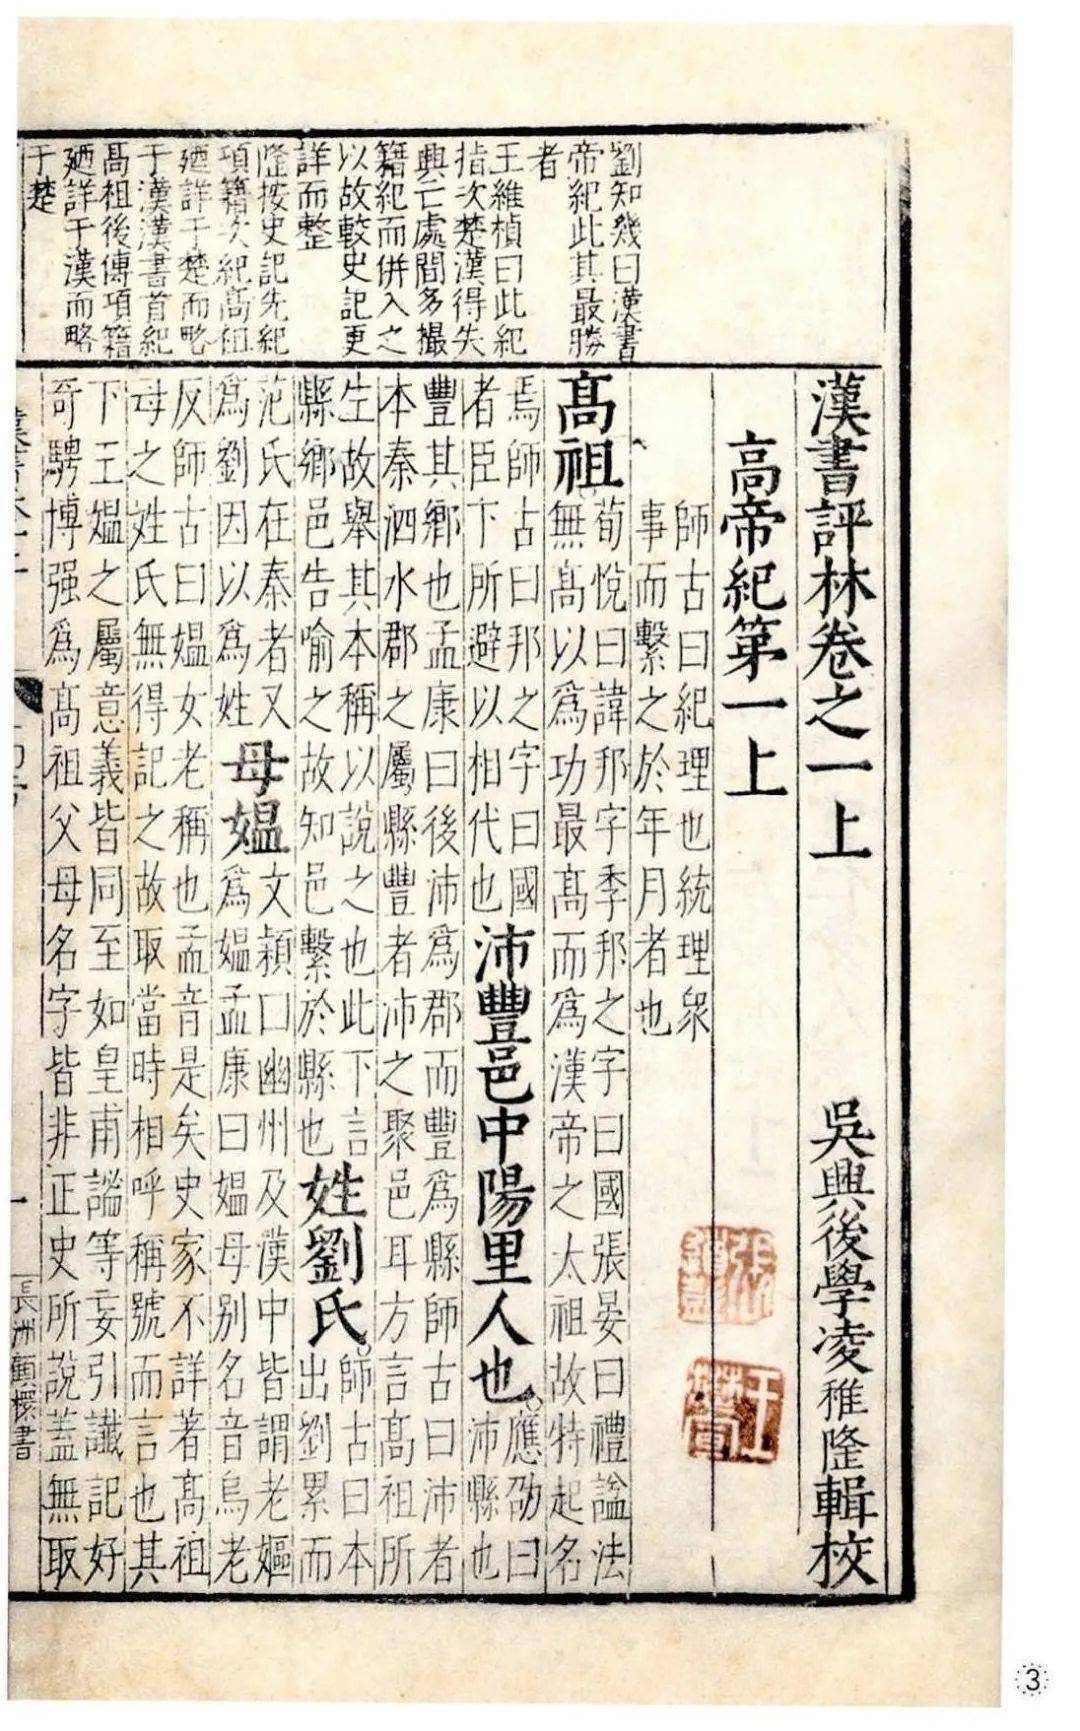 劉知幾曰漢書
帝紀此其最勝
者
王維楨曰此紀
指次楚漢得失
興亡處間多撮
籍紀而併入之
以故較史記更
詳而整
隆按史記先紀
項籍次紀髙祖
廼詳于楚而略
于漢漢書首紀
髙祖後傳項籍
廼詳于漢而略
于楚
漢書評林卷之一上
吳興後學凌稚隆輯校
高帝紀第一上
師古曰紀理也統理衆
事而繫之於年月者也
髙祖
荀悅曰諱邦字季邦之字曰國張晏曰禮謚法
無髙以為功最髙而為漢帝之太祖故特起名
焉師古曰邦之字曰國
者臣下所避以相代也
沛豐邑中陽里人也
應劭曰
沛縣也
豐其鄉也孟康曰後沛為郡而豐為縣師古曰沛者
本秦泗水郡之屬縣豐者沛之聚邑耳方言髙祖所
生故舉其本稱以說之也此下言
縣鄉邑告喻之故知邑繫於縣也
姓劉氏
師古曰本
出劉累而
范氏在秦者又
為劉因以為姓
母媼
文穎曰幽州及漢中皆謂老嫗
為媼孟康曰媼母别名音烏老
反師古曰媼女老稱也孟音是矣史家不詳著髙祖
母之姓氏無得記之故取當時相呼稱號而言也其
下王媼之屬意義皆同至如皇甫謐等妄引讖記好
奇騁博强為髙祖父母名字皆非正史所說蓋無取
一
長洲顧櫝書